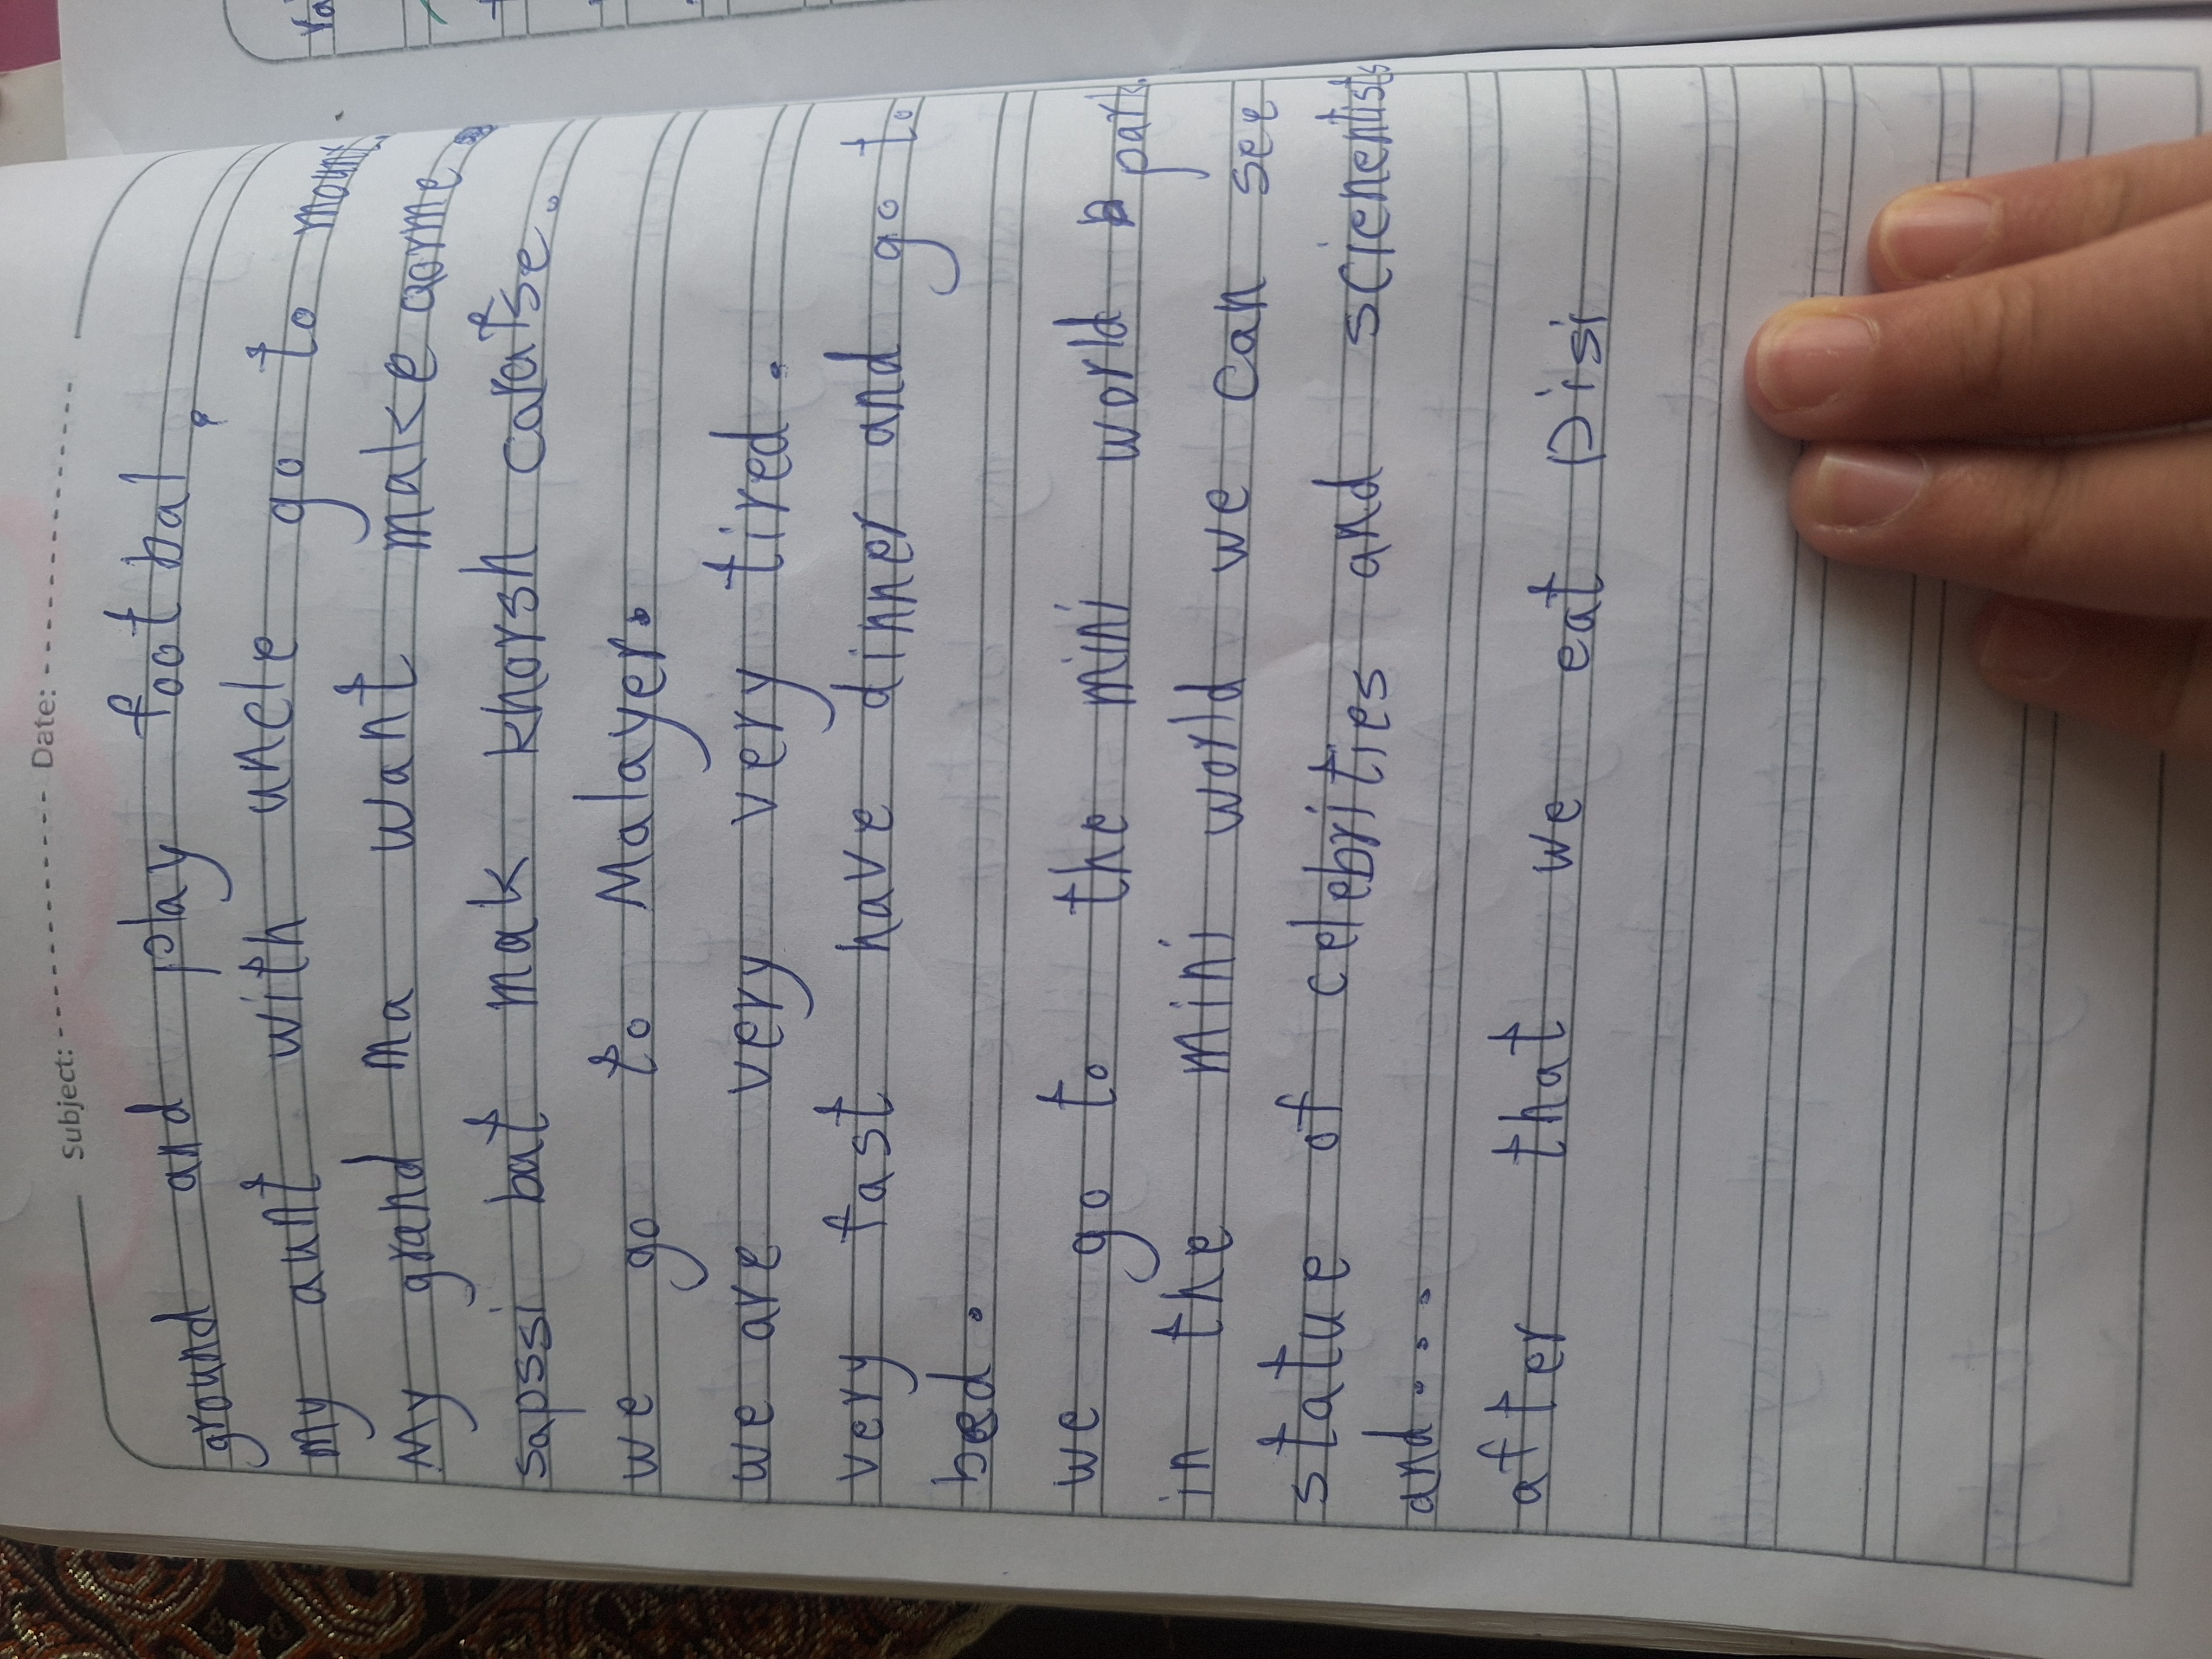 Subject: Date:
ground and play foot bal.
my aunt with uncle go to
My grand ma want make qorme
sapssi but mak khorsh
we go to Malayer.
we are very very tired.
very fast have dinner and go to
bed.
we go to the mini world park.
in the mini world we can see
statue of celebrities and scienentists
and...
after that we eat Disi